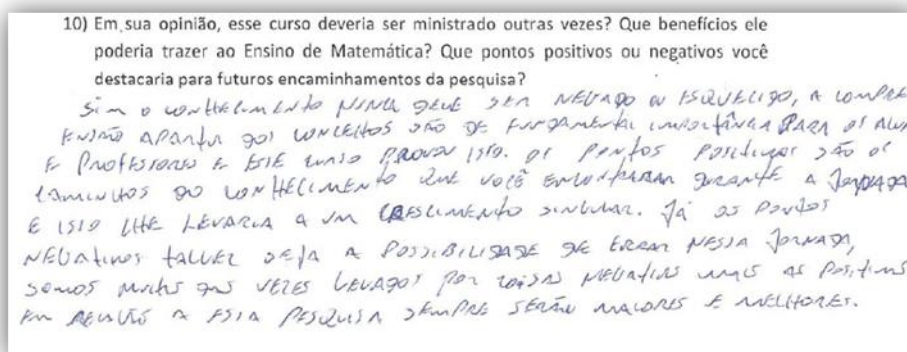 10) Em sua opinião, esse curso deveria ser ministrado outras vezes? Que benefícios ele
poderia trazer ao Ensino de Matemática? Que pontos positivos ou negativos você
destacaria para futuros encaminhamentos da pesquisa?
Sim o conhecimento nunca deve ser negado ou esquecido, a compre
ensão dos conceitos são de fundamental importância para os alun
e professores e este curso provou isto. Os pontos positivos são os
caminhos do conhecimento que você encontraram durante a jornada
e isso lhe levaria a um crescimento singular. Já os pontos
negativos talvez seja a possibilidade de errar nessa jornada,
somos muitas das vezes levados por coisas negativas mais as positivas
em a esta pesquisa sempre serão maiores e melhores.